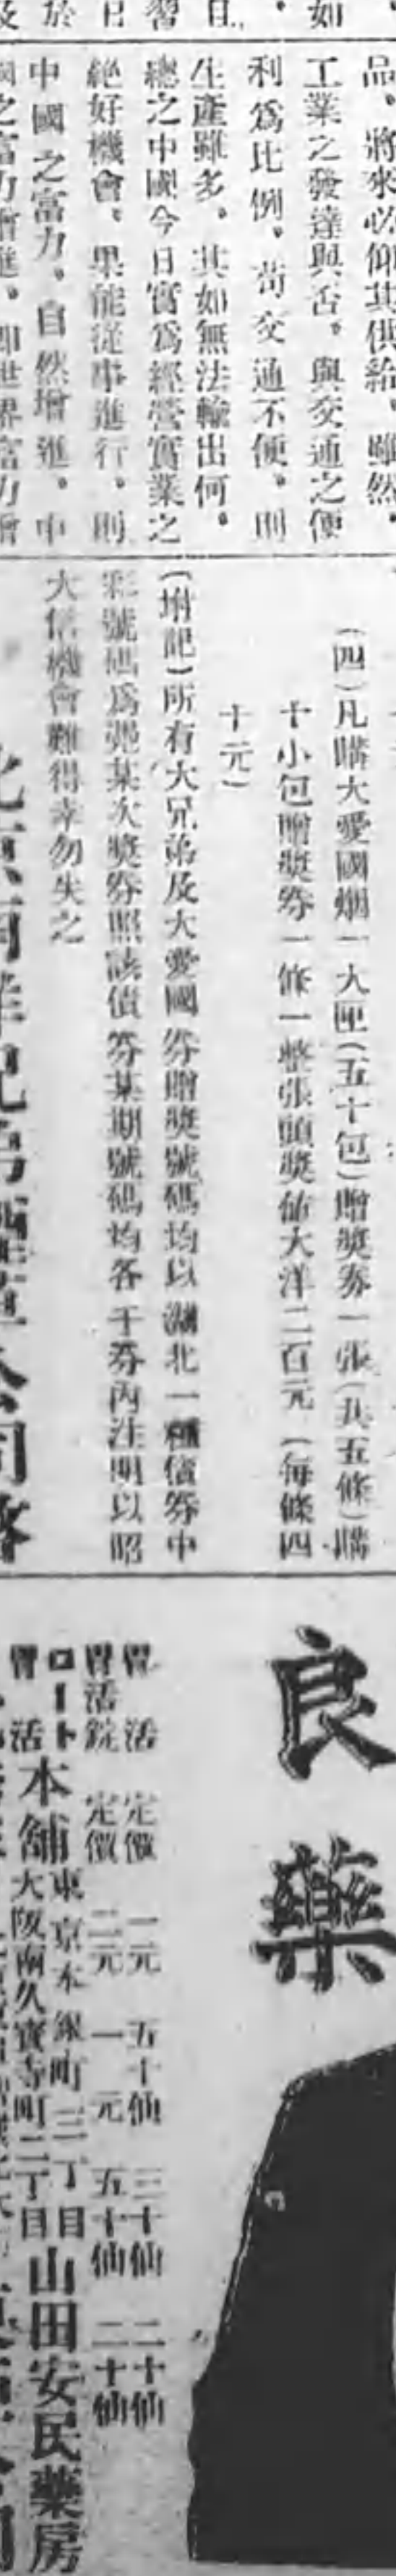 品。將來必仰其供給。雖然。
工業之發達與否。與交通之便
利爲比例。苟交通不便。則
生產雖多。其如無法輸出何。
總之中國今日實爲經營實業之
絕好機會。果能從事進行。則
中國之富力。自然增進。中
之富力增進。卽世界富力增
(四)凡購大愛國烟一大匣(五十包)贈獎券一張(共五條)購
十小包贈獎券一條一整張頭獎佔大洋二百元(每條四
十元)
(坿記)所有大兄弟及大愛國券贈獎號碼均以湖北一種債券中
彩號碼爲凴某次獎券照該債券某期號碼均各于券內注明以昭
大信機會難得幸勿失之
良藥
胃活 定價 一元 五十仙 三十仙 二十仙
胃活錠 定價 二元 一元 五十仙 二十仙
ロート本舖 東京本銀町三丁目
胃活 大阪南久寶寺町二丁目
山田安民藥房